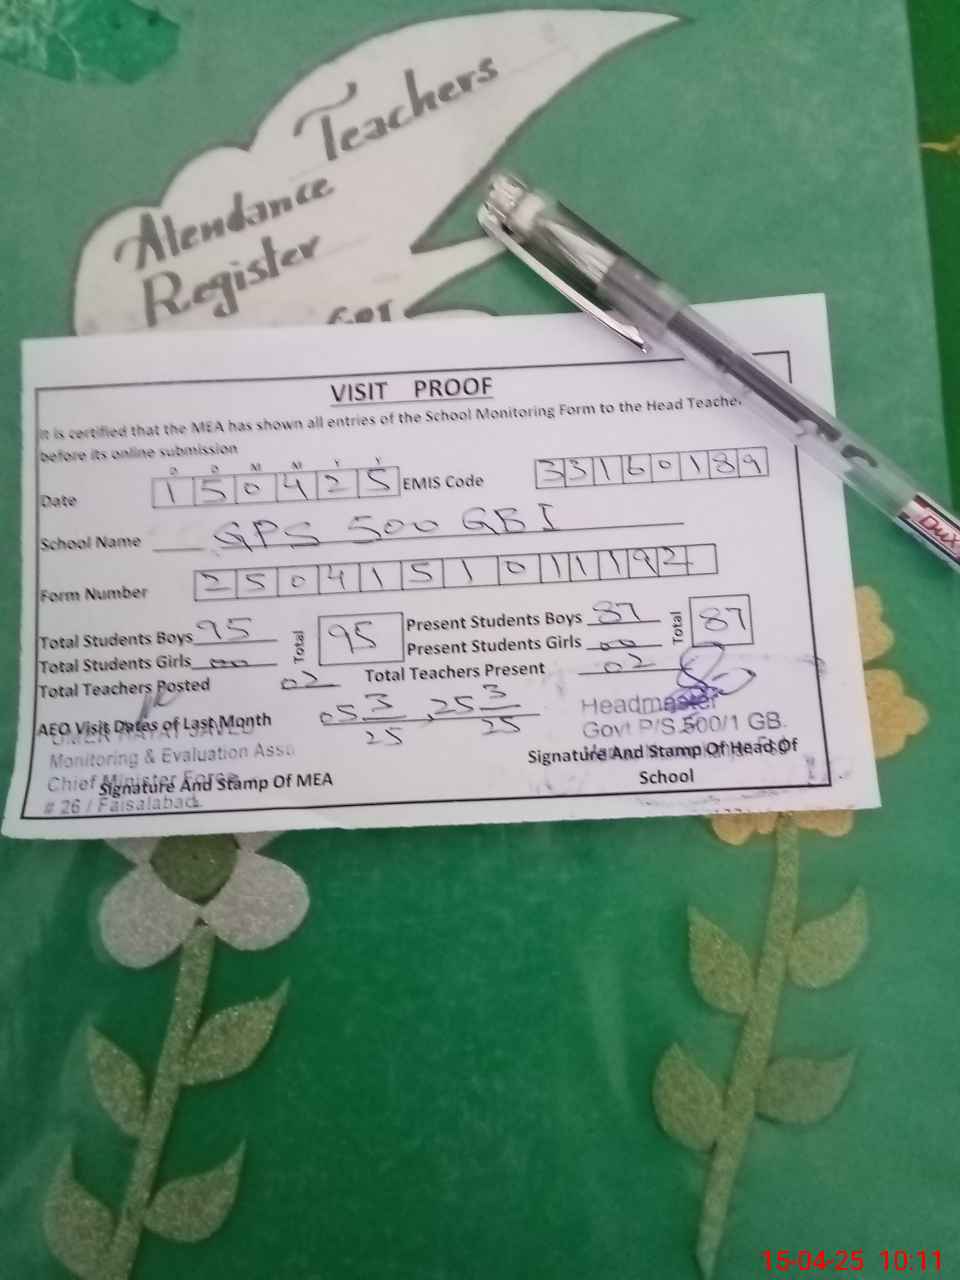 Teachers
Atendance
Register
For
VISIT PROOF
It is certified that the MEA has shown all entries of the School Monitoring Form to the Head Teacher
before its online submission
D D M M Y Y
Date 1 5 0 4 2 5 EMIS Code 3 3 1 6 0 1 8 9
School Name GPS 500 GB I
Form Number 2 5 0 4 1 5 1 0 1 1 1 9 2
Total Students Boys 95 Total 95 Present Students Boys 87 Total 87
Total Students Girls 00 Present Students Girls 00
Total Teachers Posted 02 Total Teachers Present 02
AEO Visit Dates of Last Month 05 3/25, 25 3/25
Headmaster
Govt P/S 500/1 GB.
UMER HAYAT JAVED
Monitoring & Evaluation Asst
Chief Minister Force
# 26 / Faisalabad.
Signature And Stamp Of MEA
Signature And Stamp Of Head Of
School
Dux
15-04-25 10:11